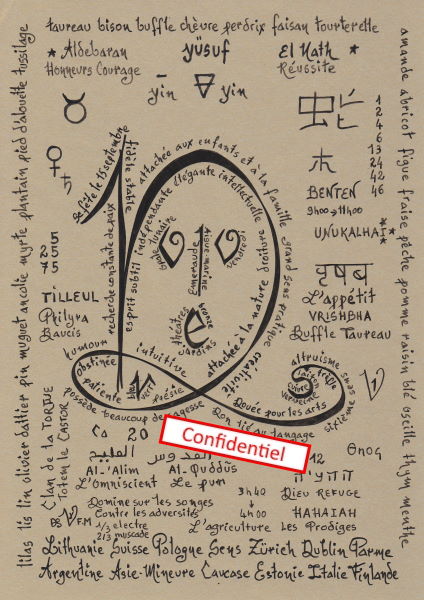 taureau bison buffle chèvre perdrix faisan tourterelle
lilas lis lin olivier dattier pin muguet ancolie myrte plantain pied d'alouette tussilage
amande abricot figue fraise pêche pomme raisin blé oseille thym menthe
★ Aldebaran
Honneurs Courage
yüsuf
El Nath ★
Réussite
yin yin
♉
♀
♄
5
25
75
TILLEUL
Philyra
Baucis
Clan de la TORTUE
Totem le CASTOR
虫它
木
1
2
4
6
13
24
42
46
BENTEN
9h00→11h00
UNUKALHAI
वृषभ
L'appétit
VRISHBHA
Buffle Taureau
se fête le 15 septembre
fidèle stable
recherche constante de paix
esprit subtil indépendante élégante intellectuelle
attachée aux enfants et à la famille grand sens pratique
attachée à la nature droiture
créativité
Émeraude
Aigue-marine
vendredi
théâtres
jardins
bronze
humour
obstinée
patiente
intuitive
bleu
vert
poésie
possède beaucoup de sagesse
Don lié au langage
Douée pour les arts
altruisme
sixième sens
cuivre
verveine
Ca 20
Confidentiel
12
Gnog
العليم
القدوس
Al-'Alim
Al-Quddüs
L'Omniscient
Le pur
ההעיה
3h40
Dieu REFUGE
4h00
HAHAIAH
Domine sur les songes
Contre les adversités
L'agriculture Les Prodiges
F.M
1/3 electre
2/3 muscade
Lithuanie Suisse Pologne Sens Zürich Dublin Parme
Argentine Asie-Mineure Caucase Estonie Italie Finlande